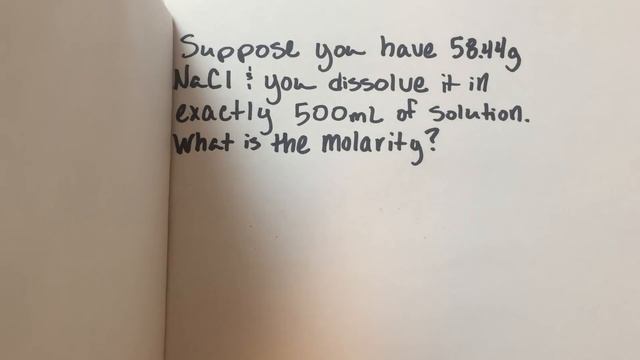 Suppose you have 58.44g
NaCl & you dissolve it in
exactly 500mL of solution.
What is the molarity?